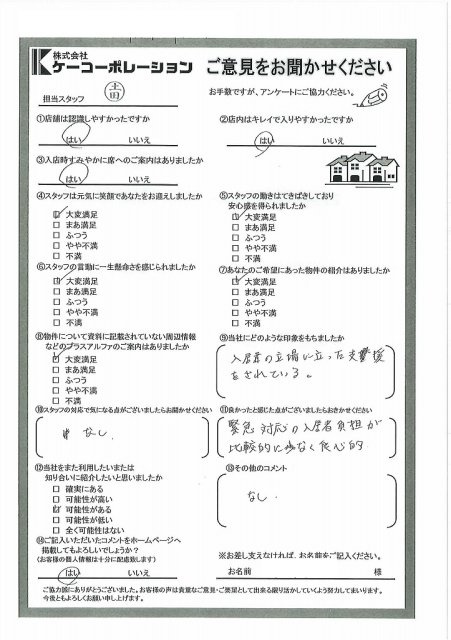 株式会社
ケーコーポレーション ご意見をお聞かせください
担当スタッフ
お手数ですが、アンケートにご協力ください。
①店舗は認識しやすかったですか
はい いいえ
②店内はキレイで入りやすかったですか
はい いいえ
③入店時すみやかに席へのご案内はありましたか
はい いいえ
④スタッフは元気に笑顔であなたをお迎えしましたか
□ 大変満足
□ まあ満足
□ ふつう
□ やや不満
□ 不満
⑤スタッフの動きはてきぱきしており
安心感を得られましたか
□ 大変満足
□ まあ満足
□ ふつう
□ やや不満
□ 不満
⑥スタッフの言動に一生懸命さを感じられましたか
□ 大変満足
□ まあ満足
□ ふつう
□ やや不満
□ 不満
⑦あなたのご希望にあった物件の紹介はありましたか
□ 大変満足
□ まあ満足
□ ふつう
□ やや不満
□ 不満
⑧物件について資料に記載されていない周辺情報
などのプラスアルファのご案内はありましたか
□ 大変満足
□ まあ満足
□ ふつう
□ やや不満
□ 不満
⑨当社にどのような印象をもちましたか
入居者の立場に立った支援
をされている。
⑩スタッフの対応で気になる点がございましたらお聞かせください
なし.
⑪良かったと感じた点がございましたらおきかせください
緊急対応の入居者負担が
比較的に少なく良心的
⑫当社をまた利用したいまたは
知り合いに紹介したいと思いましたか
□ 確実にある
□ 可能性が高い
□ 可能性がある
□ 可能性が低い
□ 全く可能性はない
⑬その他のコメント
なし.
⑭ご記入いただいたコメントをホームページへ
掲載してもよろしいでしょうか?
(お客様の個人情報は十分に配慮致します)
はい いいえ
※お差し支えなければ、お名前をご記入ください。
お名前 様
ご協力誠にありがとうございました。お客様の声は貴重なご意見・ご要望として出来る限り活かしていくよう努力してまいります。
今後ともよろしくお願い申し上げます。